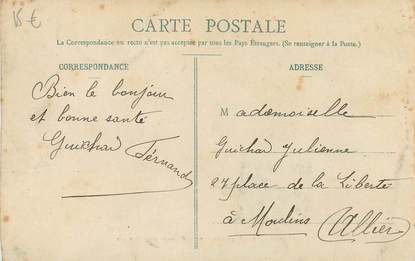 15 €
CARTE POSTALE
La Correspondance au recto n'est pas acceptée par tous les Pays Étrangers. (Se renseigner à la Poste.)
CORRESPONDANCE
Bien le bonjour
et bonne santé
Guichar Fernand
ADRESSE
Mademoiselle
Guichar Julienne
27 place de la Liberte
à Moulins (Allier)